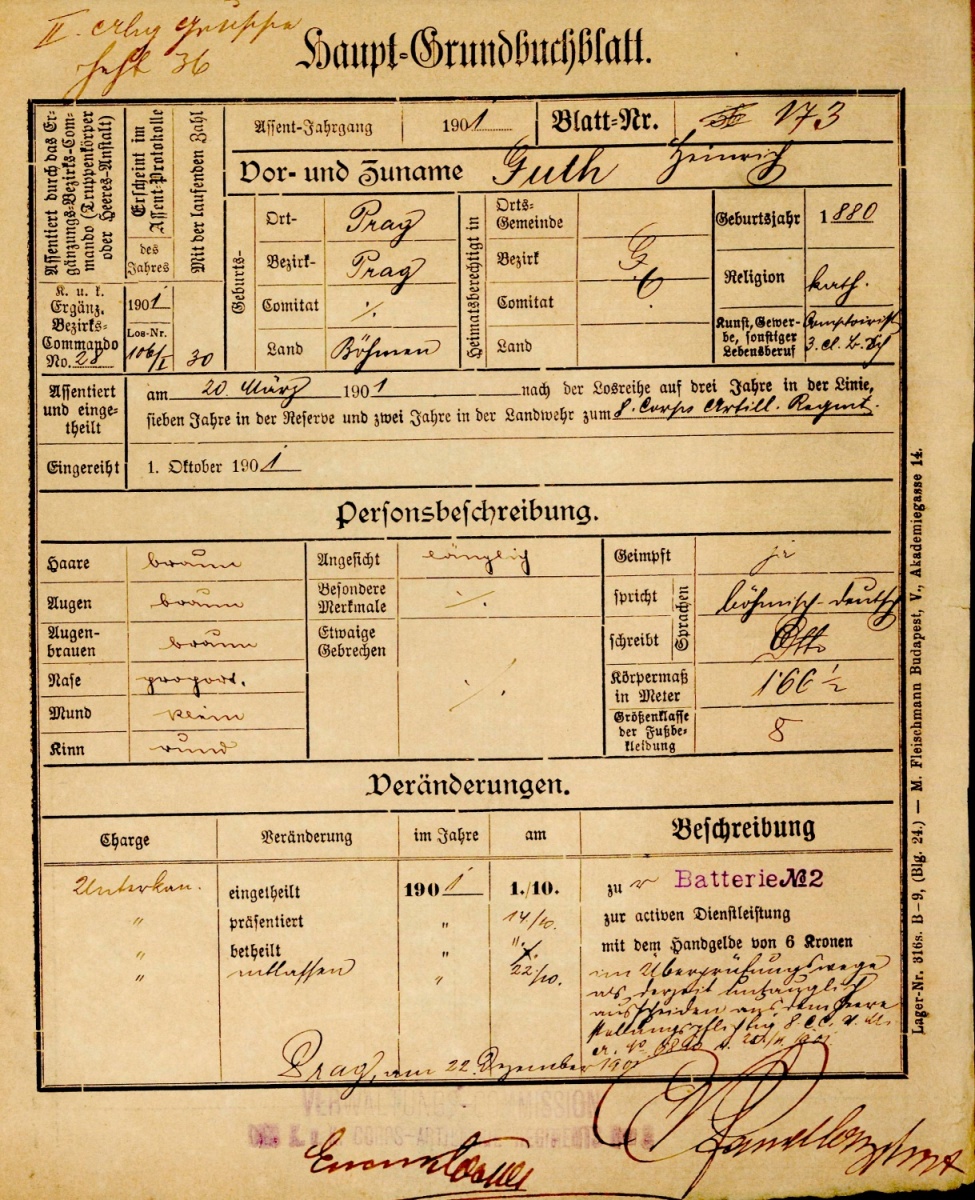 II. Gruppe
Heft 36
Haupt-Grundbuchblatt.
Assentiert durch das Ergänzungs-Bezirks-Commando (Truppenkörper oder Heeres-Anstalt)
Erscheint im Assent-Protokolle
des Jahres
Mit der laufenden Zahl
K. u. k.
Ergänz.
Bezirks-
Commando
No. 28
1901
Los-Nr.
106/I
30
Assent-Jahrgang 1901 Blatt-Nr. 173
Vor- und Zuname Guth Heinrich
Geburts-
Ort- Prag
Bezirk- Prag
Comitat ·/·
Land Böhmen
Heimatsberechtigt in
Orts-
Gemeinde
Bezirk
Comitat
Land
Geburtsjahr 1880
Religion kath.
Kunst, Gewer-
be, sonstiger
Lebensberuf
Comptoirist
3. cl.
Assentiert
und einge-
theilt
am 20. März 1901 nach der Losreihe auf drei Jahre in der Linie,
sieben Jahre in der Reserve und zwei Jahre in der Landwehr zum 8. Corps Artill. Regmt.
Eingereiht 1. Oktober 1901
Personsbeschreibung.
Haare braun
Augen braun
Augen-
brauen braun
Nase proport.
Mund klein
Kinn rund
Angesicht länglich
Besondere
Merkmale ·/·
Etwaige
Gebrechen ·/·
Geimpft ja
spricht
schreibt
Sprachen
böhmisch-deutsch
Dtto
Körpermaß
in Meter 1·66 ½
Größenklasse
der Fußbe-
kleidung 8
Veränderungen.
Charge Veränderung im Jahre am Beschreibung
Unterkan. eingetheilt 1901 1./10. zur Batterie №2
" präsentiert " 14/10. zur activen Dienstleistung
" betheilt " " mit dem Handgelde von 6 Kronen
" entlassen " 22/10. im Überprüfungswege
als derzeit untauglich
ausscheiden aus dem Heere
stellungspflichtig 8. C. C.
Prag, am 22. Dezember 1901
VERWALTUNGS-COMMISSION
DES K. u. K. CORPS-ARTILLERIE-REGIMENTS No 8
Lager-Nr. 316s. B–9, (Blg. 24.) — M. Fleischmann Budapest, V., Akademiegasse 14.